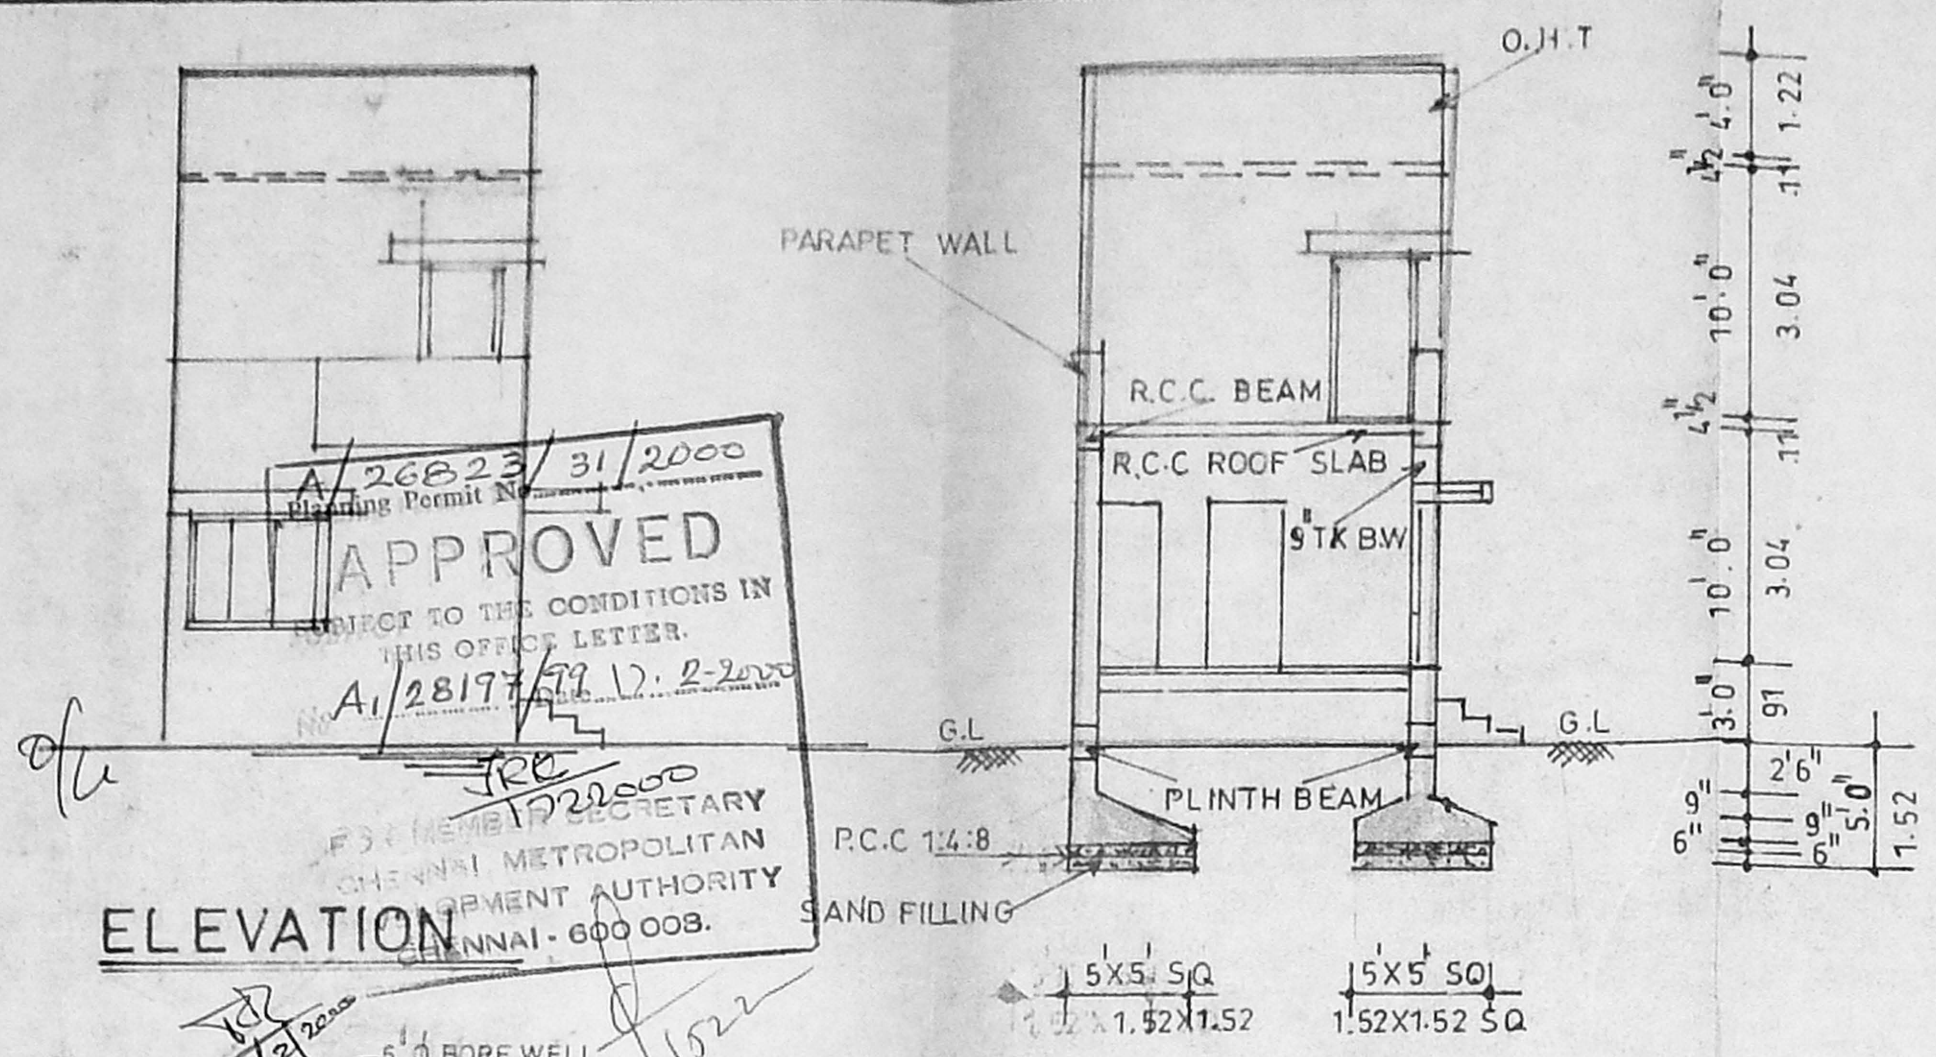 O.H.T
PARAPET WALL
R.C.C. BEAM
R.C.C ROOF SLAB
9" TK B.W
G.L
G.L
PLINTH BEAM
P.C.C 1:4:8
SAND FILLING
5'X5' SQ
1.52X1.52
5'X5' SQ
1.52X1.52 SQ
4'.0"
1.22
4½"
.11
10'.0"
3.04
4½"
.11
10'.0"
3.04
3'.0"
91
2'6"
9"
9"
6"
6"
5'.0"
1.52
A/26823/31/2000
Planning Permit No
APPROVED
SUBJECT TO THE CONDITIONS IN
THIS OFFICE LETTER.
No A1/28197/99 Date 17.2-2000
1722000
FOR MEMBER SECRETARY
CHENNAI METROPOLITAN
DEVELOPMENT AUTHORITY
CHENNAI - 600 008.
ELEVATION
BORE WELL